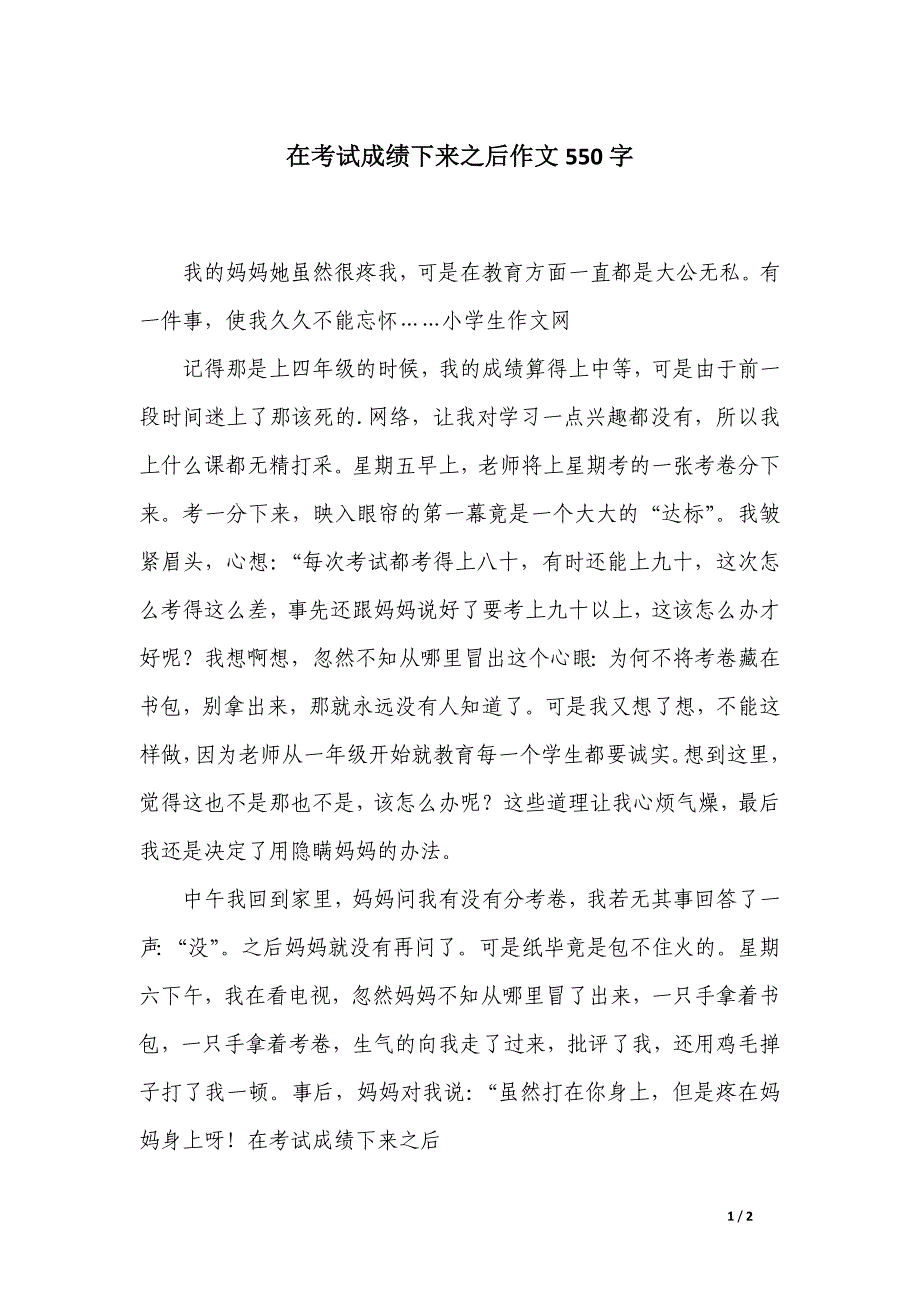 在考试成绩下来之后作文 550 字
我的妈妈她虽然很疼我，可是在教育方面一直都是大公无私。有
一件事，使我久久不能忘怀……小学生作文网
记得那是上四年级的时候，我的成绩算得上中等，可是由于前一
段时间迷上了那该死的.网络，让我对学习一点兴趣都没有，所以我
上什么课都无精打采。星期五早上，老师将上星期考的一张考卷分下
来。考一分下来，映入眼帘的第一幕竟是一个大大的“达标”。我皱
紧眉头，心想：“每次考试都考得上八十，有时还能上九十，这次怎
么考得这么差，事先还跟妈妈说好了要考上九十以上，这该怎么办才
好呢？我想啊想，忽然不知从哪里冒出这个心眼：为何不将考卷藏在
书包，别拿出来，那就永远没有人知道了。可是我又想了想，不能这
样做，因为老师从一年级开始就教育每一个学生都要诚实。想到这里，
觉得这也不是那也不是，该怎么办呢？这些道理让我心烦气燥，最后
我还是决定了用隐瞒妈妈的办法。
中午我回到家里，妈妈问我有没有分考卷，我若无其事回答了一
声：“没”。之后妈妈就没有再问了。可是纸毕竟是包不住火的。星期
六下午，我在看电视，忽然妈妈不知从哪里冒了出来，一只手拿着书
包，一只手拿着考卷，生气的向我走了过来，批评了我，还用鸡毛掸
子打了我一顿。事后，妈妈对我说：“虽然打在你身上，但是疼在妈
妈身上呀！在考试成绩下来之后
1 / 2